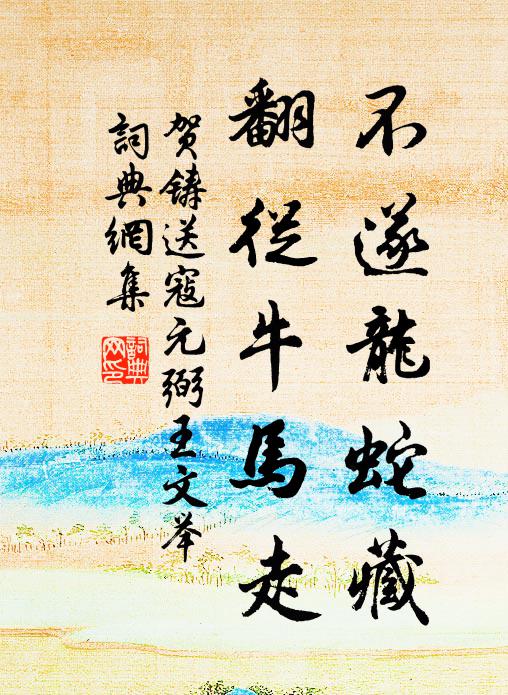 不遂龍蛇藏
翻從牛馬走
贺鑄送寇元弼王文举
詞典網集
詞典
网印